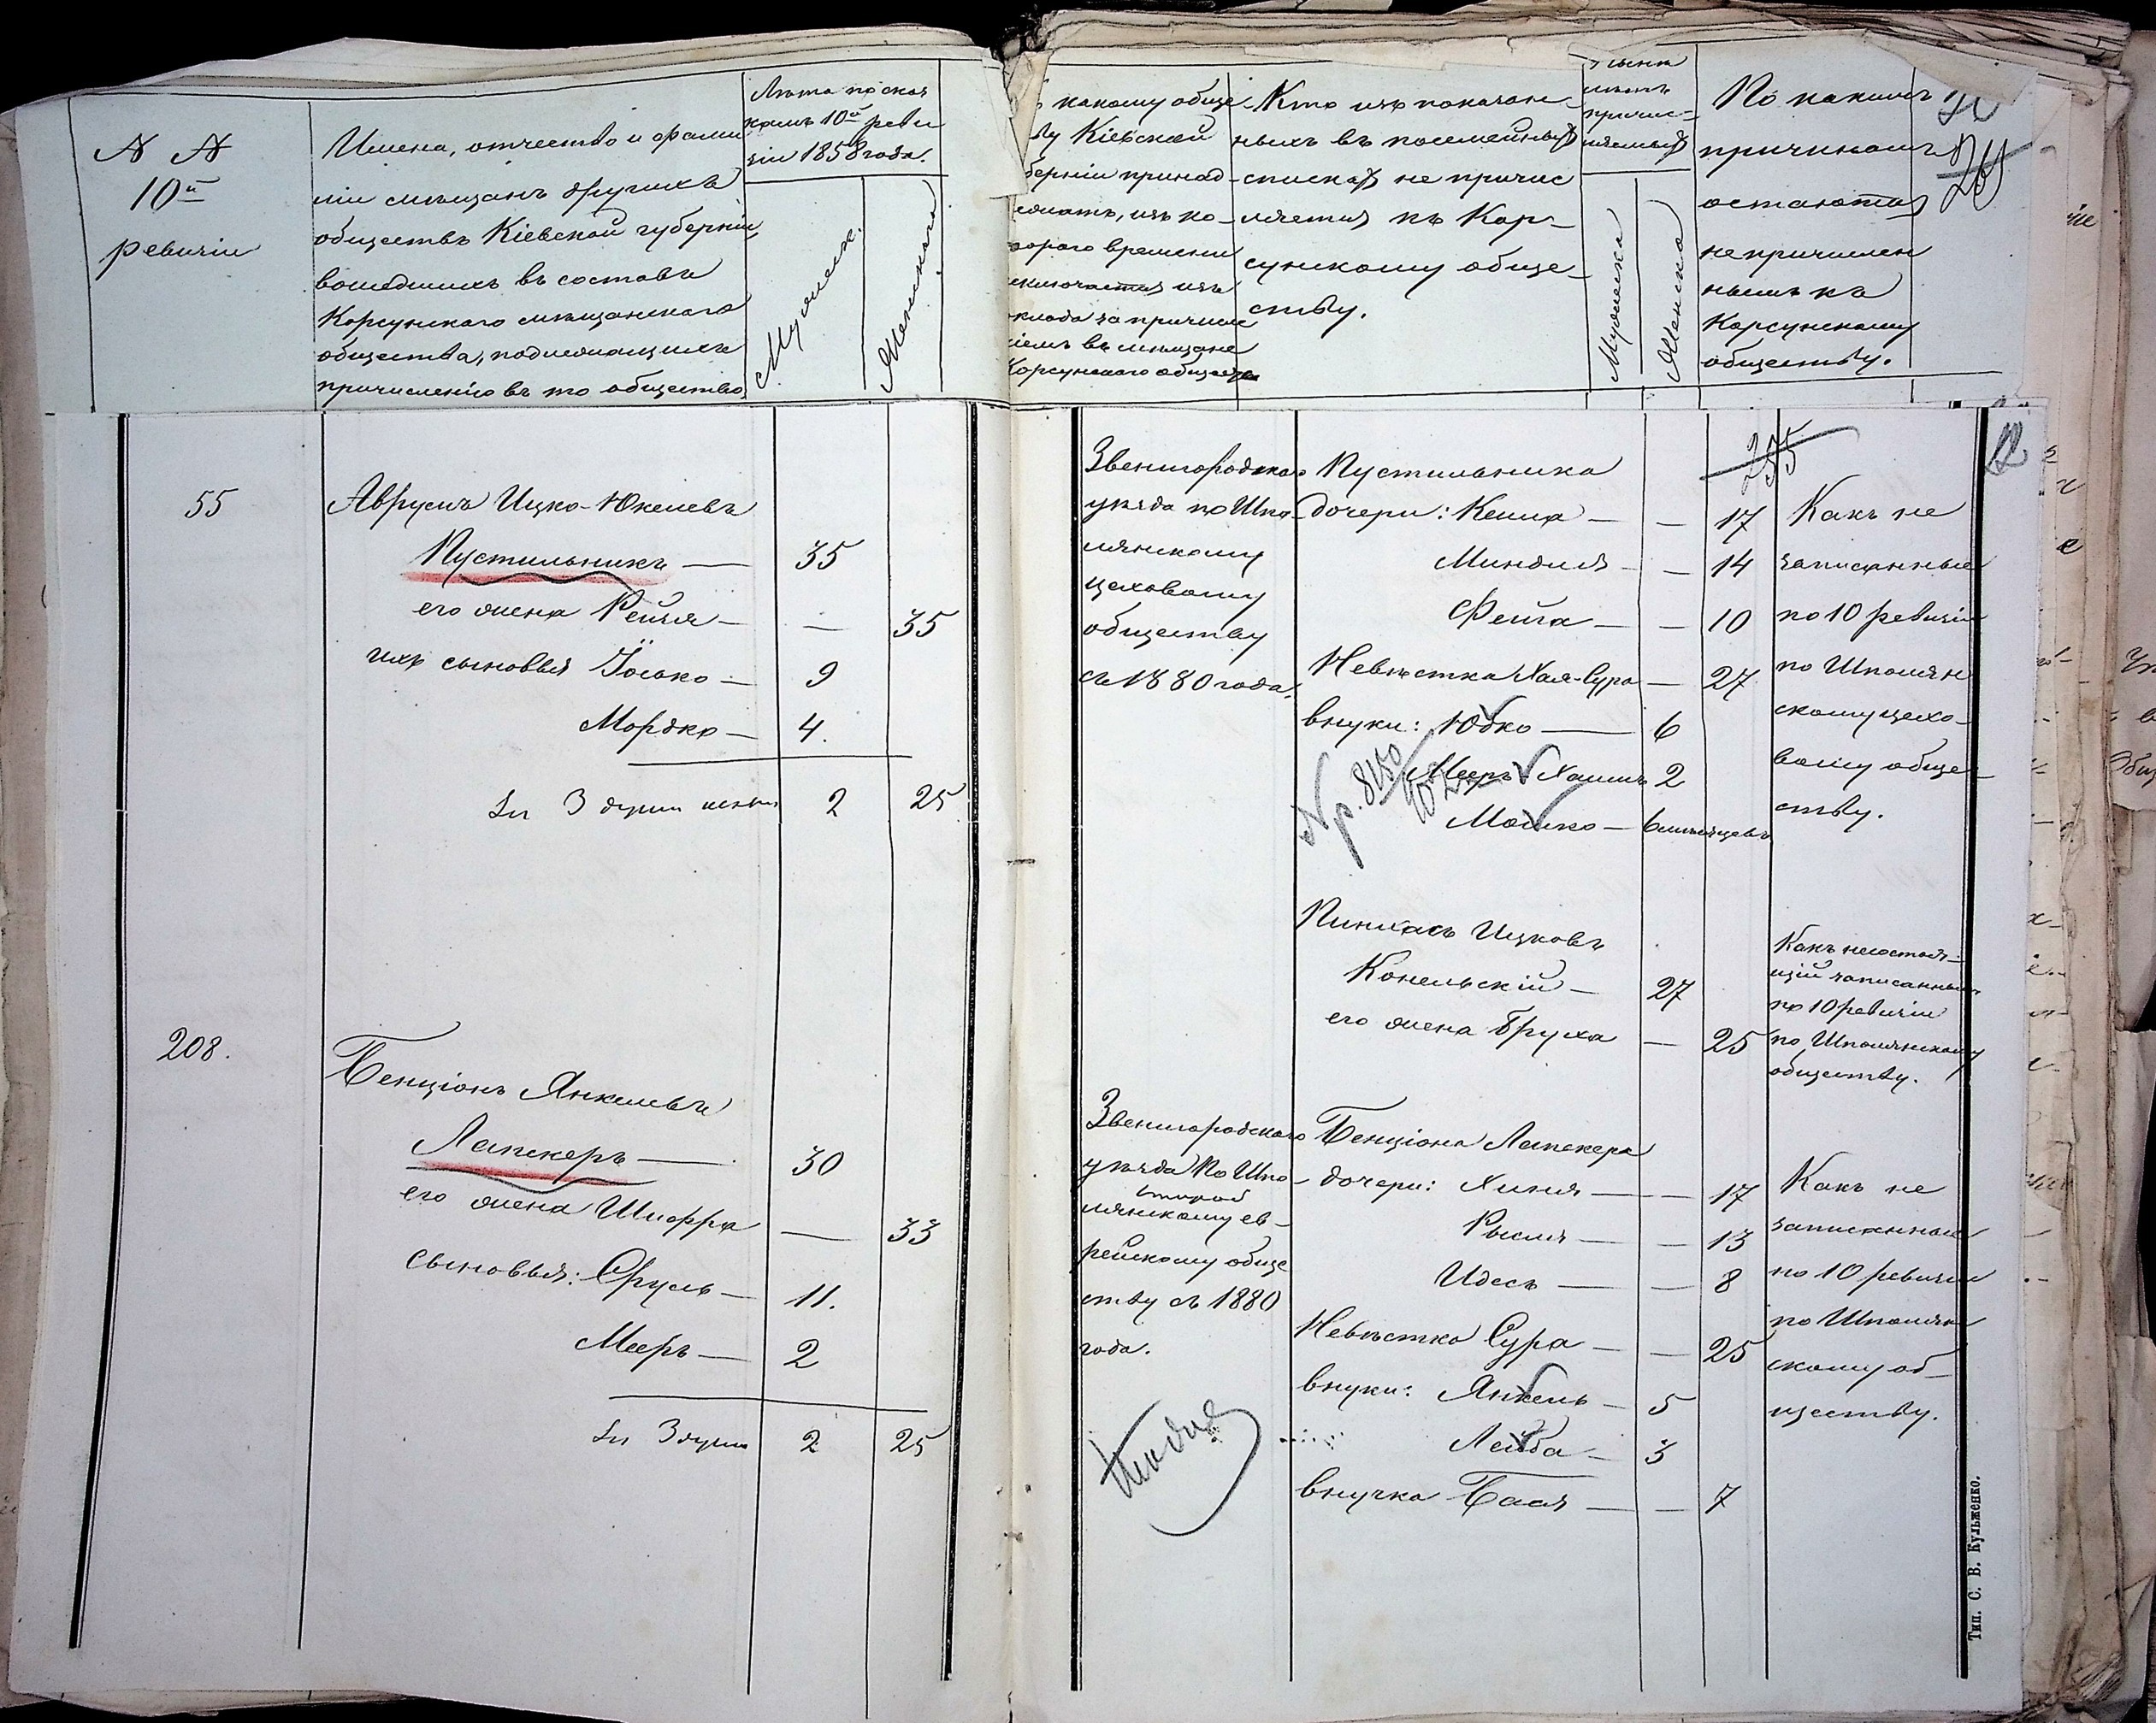 № №
10й
ревизіи
Имена, отчество и фами
ліи мѣщанъ другихъ
обществъ Кіевской губерніи,
вошедшихъ въ составъ
Корсунскаго мѣщанскаго
общества, подлежащихъ
причисленію въ то общество.
Лѣта по сказ
камъ 10й реви
зіи 1858 года.
Мужеск.
Женскаго
какому обще
ву Кіевской
берніи принад
лежатъ, изъ ко-
тораго времени
исключаются изъ
оклада за причисле
ніемъ въ мѣщане
Корсунскаго общества
Кто изъ показан-
ныхъ въ посемейныхъ
спискахъ не причис
ляется къ Кор-
сунскому обще-
ству.
причис-
ляемыхъ
Мужеска
Женска
По какимъ
причинамъ
остаются
непричислен
ными къ
Корсунскому
обществу.
55
Аврумъ Ицко-Юкелевъ
Пустильникъ — 35
его жена Рейзя — — 35
ихъ сыновья Іосько — 9
Мордко — 4.
2 25
208.
Бенціонъ Янкелевъ
Лапскеръ — 30
его жена Шифра — 33
сыновья: Сруль — 11.
Мееръ — 2
2 25
Звенигородскаго
уѣзда по Шпо-
лянскому
цеховому
обществу
съ 1880 года.
Пустильника
дочери: Кейла — — 17
Миндля — — 14
Фейга — — 10
Невѣстка Хая-Сура — 27
внуки: Юдко — 6
Мееръ Хаимъ 2
Мошко — 6 мѣсяцевъ
255
12
Какъ не
записанные
по 10 ревизіи
по Шполян
скому цехо-
вому обще-
ству.
Пинхасъ Ицковъ
Конельскій — 27
его жена Бруха — 25
Какъ несостоя-
щій записаннымъ
по 10 ревизіи
по Шполянскому
обществу.
Звенигородскаго
уѣзда По Шпо-
второй
лянскому ев-
рейскому обще
ству съ 1880
года.
Бенціона Лапскера
дочери: Хиня — — 17
Рысля — — 13
Идесъ — — 8
Невѣстка Сура — — 25
внуки: Янкель — 5
Лейба — 3
внучка Бася — — 7
Какъ не
записанные
по 10 ревизіи
по Шполян
скому об-
ществу.
Тип. С. В. Кульженко.